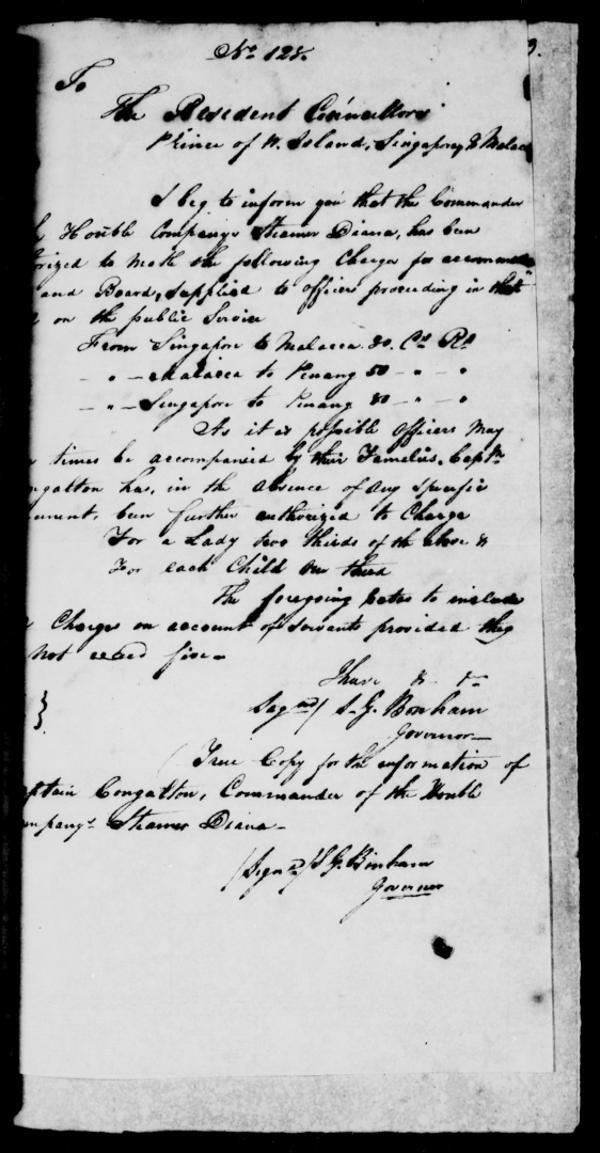 No. 128.
To
The Resident Councillors
Prince of W. Island, Singapore, & Malac
I beg to inform you that the Commander
Honble Company's Steamer Diana, has been
orized to make the following Charges for accommoda
and Board, supplied to officers proceeding in that
on the public Service
From Singapore to Malacca 30. Cos Rs
- " - Malacca to Penang 50 - " - "
- " - Singapore to Penang 80 - " - "
As it is possible Officers May
times be accompanied by their Families, Captn
ngalton has, in the absence of any specific
ument, been further authorized to Charge
For a Lady two thirds of the above &
For each Child one third
The foregoing rates to include
Charges on account of servants provided they
not exceed five -
I have &c &c
Signed / S. G. Bonham
Governor
True Copy for the information of
ptain Congalton, Commander of the Honble
mpany's Steamer Diana -
/Signed/ S G Bonham
Governor